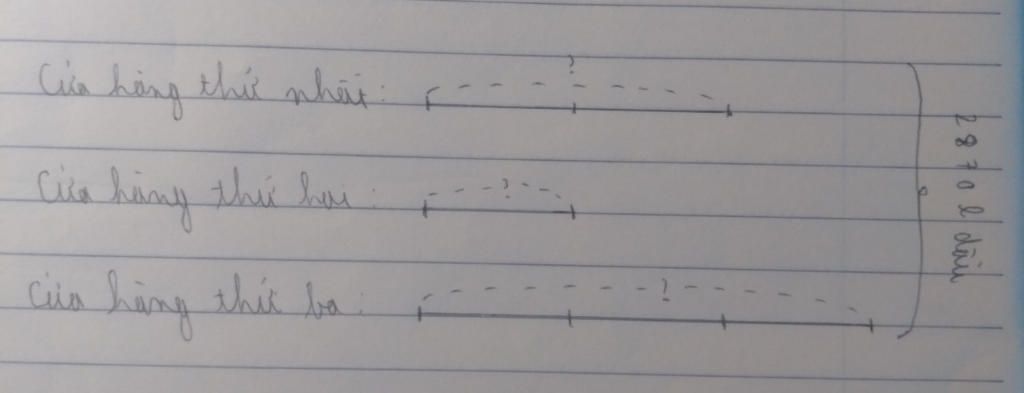 Cửa hàng thứ nhất:
?
Cửa hàng thứ hai:
?
Cửa hàng thứ ba:
?
2870 l dầu